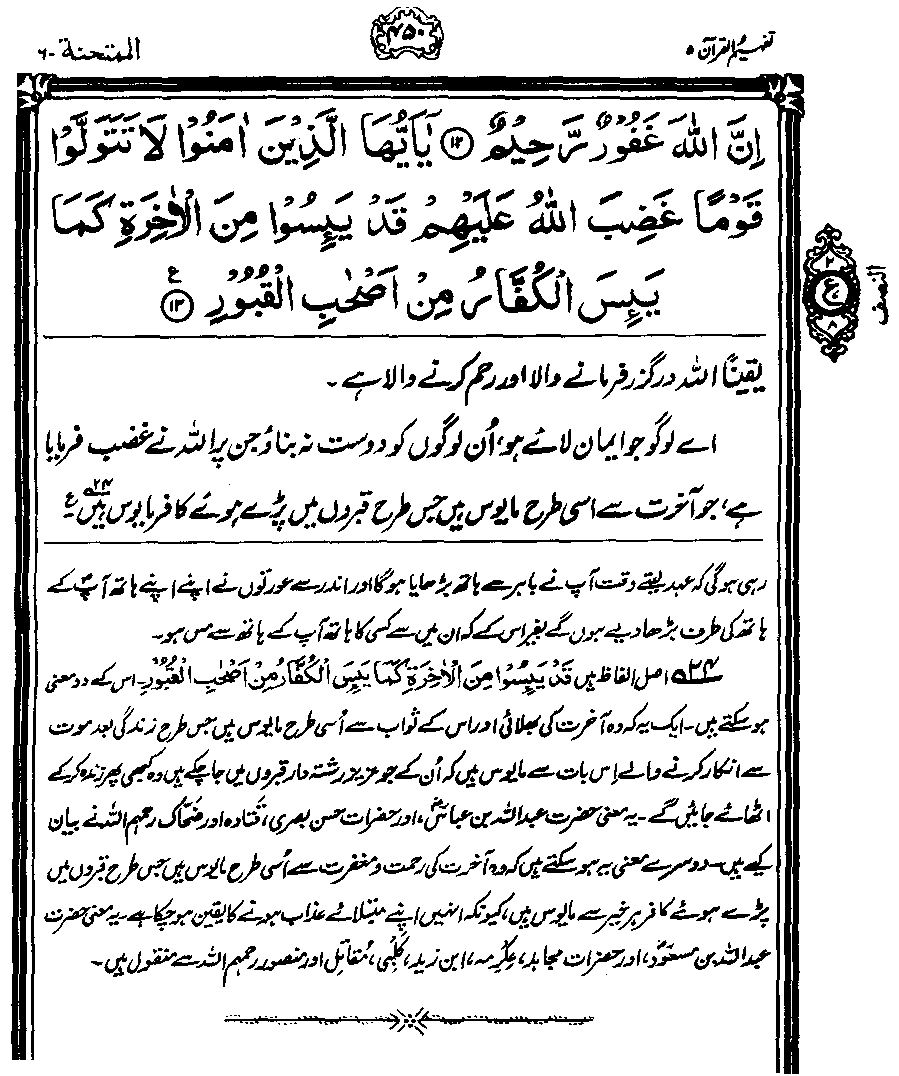 تفہیم القرآن ۵
۴۵۰
الممتحنۃ ۶۰
اِنَّ اللّٰهَ غَفُوْرٌ رَّحِيْمٌ ﴿۱۲﴾ يٰۤاَيُّهَا الَّذِيْنَ اٰمَنُوْا لَا تَتَوَلَّوْا
قَوْمًا غَضِبَ اللّٰهُ عَلَيْهِمْ قَدْ يَئِسُوْا مِنَ الْاٰخِرَةِ كَمَا
يَئِسَ الْكُفَّارُ مِنْ اَصْحٰبِ الْقُبُوْرِ ﴿۱۳﴾ ع
۲
ع
۸
النصف
یقیناً اللہ درگزر فرمانے والا اور رحم کرنے والا ہے۔
اے لوگو جو ایمان لائے ہو، اُن لوگوں کو دوست نہ بناؤ جن پر اللہ نے غضب فرمایا
ہے، جو آخرت سے اسی طرح مایوس ہیں جس طرح قبروں میں پڑے ہوئے کافر مایوس ہیں۲۴؎ ع
رہی ہو گی کہ عہد لیتے وقت آپ نے باہر سے ہاتھ بڑھایا ہو گا اور اندر سے عورتوں نے اپنے اپنے ہاتھ آپؐ کے
ہاتھ کی طرف بڑھا دیے ہوں گے بغیر اس کے کہ ان میں سے کسی کا ہاتھ آپ کے ہاتھ سے مس ہو۔
۲۴؎ اصل الفاظ ہیں قَدْ يَئِسُوْا مِنَ الْاٰخِرَةِ كَمَا يَئِسَ الْكُفَّارُ مِنْ اَصْحٰبِ الْقُبُوْرِ۔ اس کے دو معنی
ہو سکتے ہیں۔ ایک یہ کہ وہ آخرت کی بھلائی اور اس کے ثواب سے اُسی طرح مایوس ہیں جس طرح زندگی بعد موت
سے انکار کرنے والے اِس بات سے مایوس ہیں کہ اُن کے جو عزیز رشتہ دار قبروں میں جا چکے ہیں وہ کبھی پھر زندہ کر کے
اٹھائے جائیں گے۔ یہ معنی حضرت عبداللہ بن عباسؓ، اور حضرات حسن بصری، قَتادہ اور ضحّاک رحمہم اللہ نے بیان
کیے ہیں۔ دوسرے معنی یہ ہو سکتے ہیں کہ وہ آخرت کی رحمت و مغفرت سے اُسی طرح مایوس ہیں جس طرح قبروں میں
پڑے ہوئے کافر ہر خیر سے مایوس ہیں، کیونکہ انہیں اپنے مبتلائے عذاب ہونے کا یقین ہو چکا ہے۔ یہ معنی حضرت
عبداللہ بن مسعودؓ، اور حضرات مجاہد، عِکْرِمہ، ابن زید، کَلْبی، مُقاتِل اور منصور رحمہم اللہ سے منقول ہیں۔